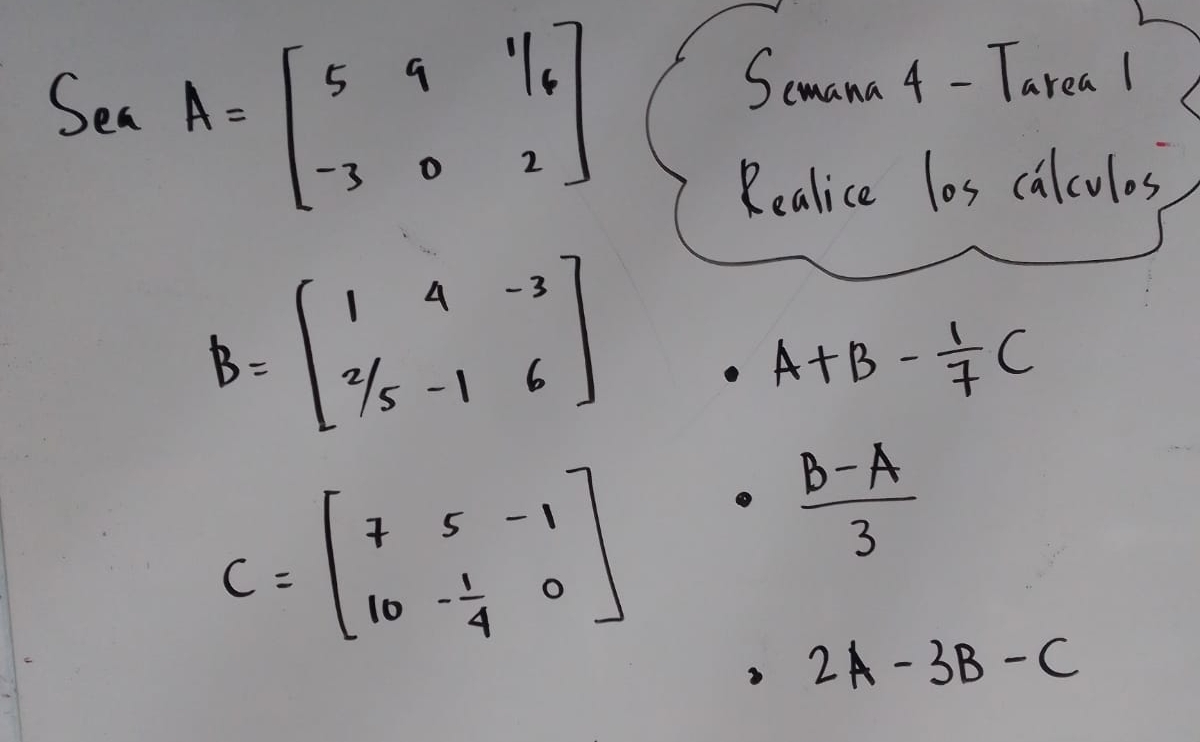 Sea A = [ 5 9 1/6
-3 0 2 ]
B = [ 1 4 -3
2/5 -1 6 ]
C = [ 7 5 -1
10 -1/4 0 ]
Semana 4 - Tarea 1
Realice los cálculos
• A+B - 1/7 C
• B-A
3
• 2A - 3B - C